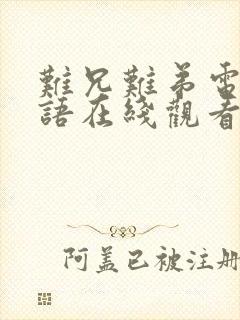 難兄難弟電
語在綫觀看
阿盖已被注册